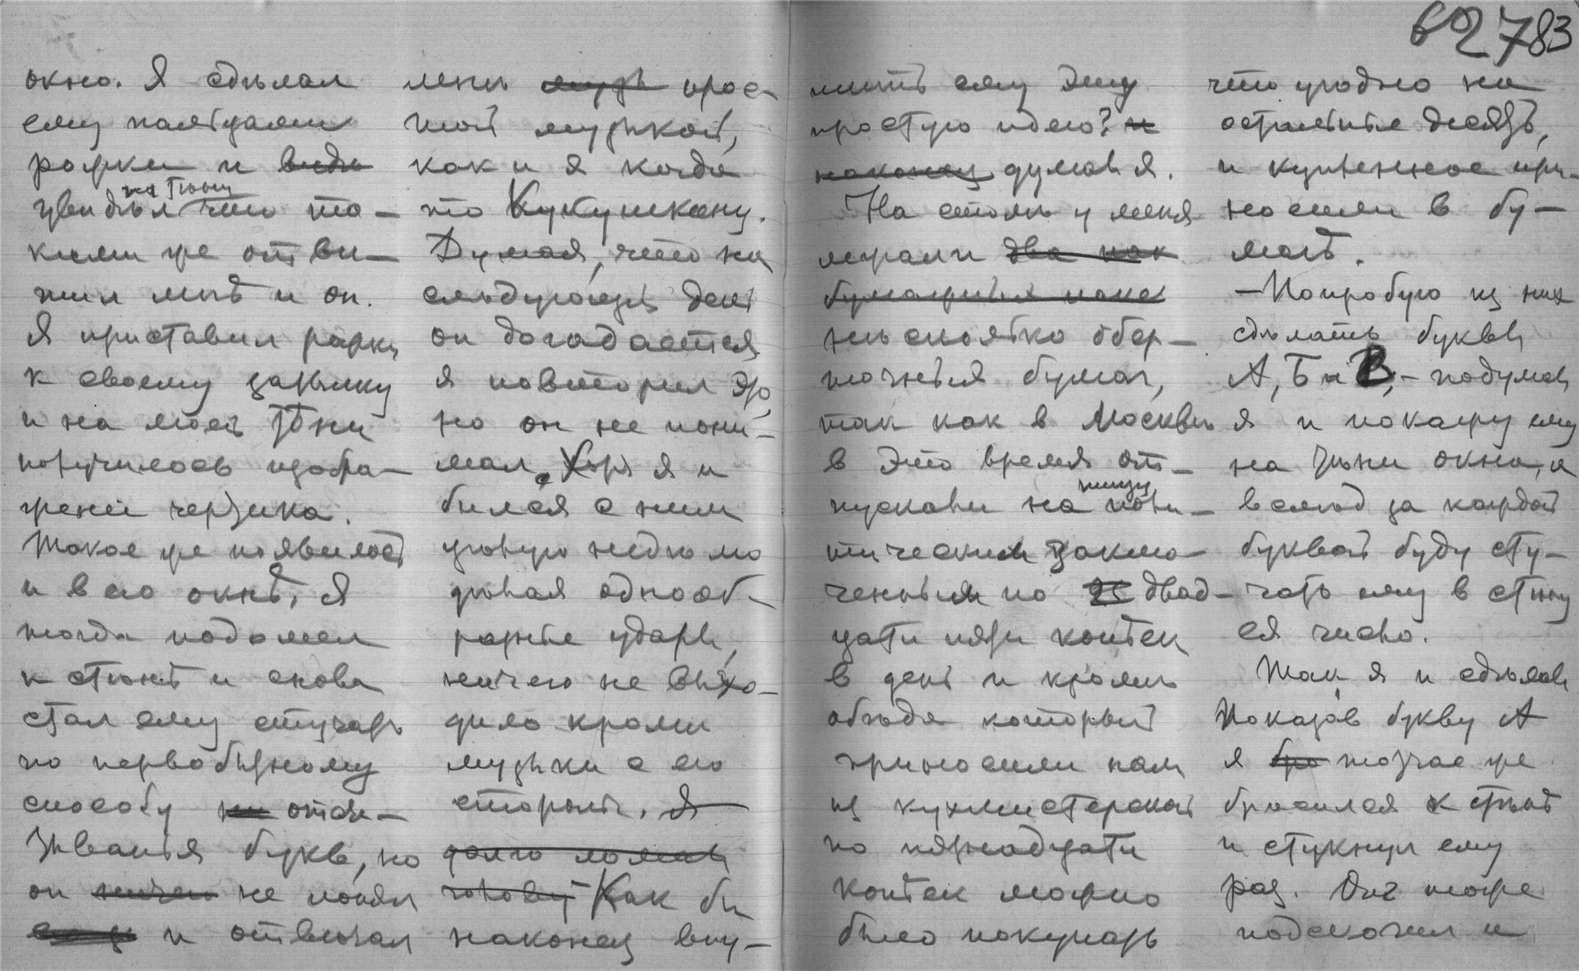 692783
окно. Я сдѣлал
ему пальцами
рожки и видн
увидѣл на тѣни что та-
кими же отвѣ-
тил мнѣ и он.
Я приставил рожки
к своему затылку
и на моей тѣни
получилось изобра-
женіе чертика.
Такое же появилось
и в его окнѣ. Я
тогда подошел
к стѣнѣ и снова
стал ему стучать
по первобытному
способу отсчи-
тыванья букв, но
он ничего не понял
и отвѣчал
мнѣ прос-
той музыкой,
как и я когда
то Кукушкину.
Думая, что на
слѣдующій день
он догадается
я повторил это,
но он не пони-
мал. Хотя я и
бился с ним
цѣлую недѣлю
дѣлая однооб-
разные удары,
ничего не выхо-
дило кромѣ
музыки с его
стороны. Я
долго ломал
голову Как бы
наконец вну-
шить ему эту
простую идею? и
наконец думал я.
На столѣ у меня
лежали два как
бумажныя паке
нѣсколько обер-
точных бумаг,
так как в Москвѣ
в это время от-
пускали на пищу поли-
тическим заклю-
ченным по 25 двад-
цати пяти копѣек
в день и кромѣ
обѣда который
приносили нам
из кухмистерской
по пятнадцати
копѣек можно
было покупать
что угодно на
остальные десять,
и купленное при-
носили в бу-
магѣ.
— Попробую из них
сдѣлать буквы
А, Б и В, – подумал
я и покажу ему
на тѣни окна, а
вслѣд за каждой
буквой буду сту-
чать ему в стѣну
ея число.
Так я и сдѣлал
Показав букву А
я бро тотчас же
бросился к стѣнѣ
и стукнул ему
раз. Он тоже
подскочил и